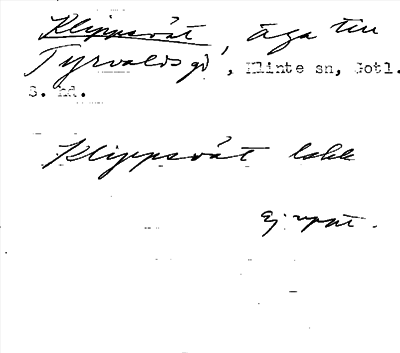 Klippsvät, äga till
Tyrvalds gd, Klinte sn, Gotl.
S. hd.
Klippsvät lokk
Ej uppt.